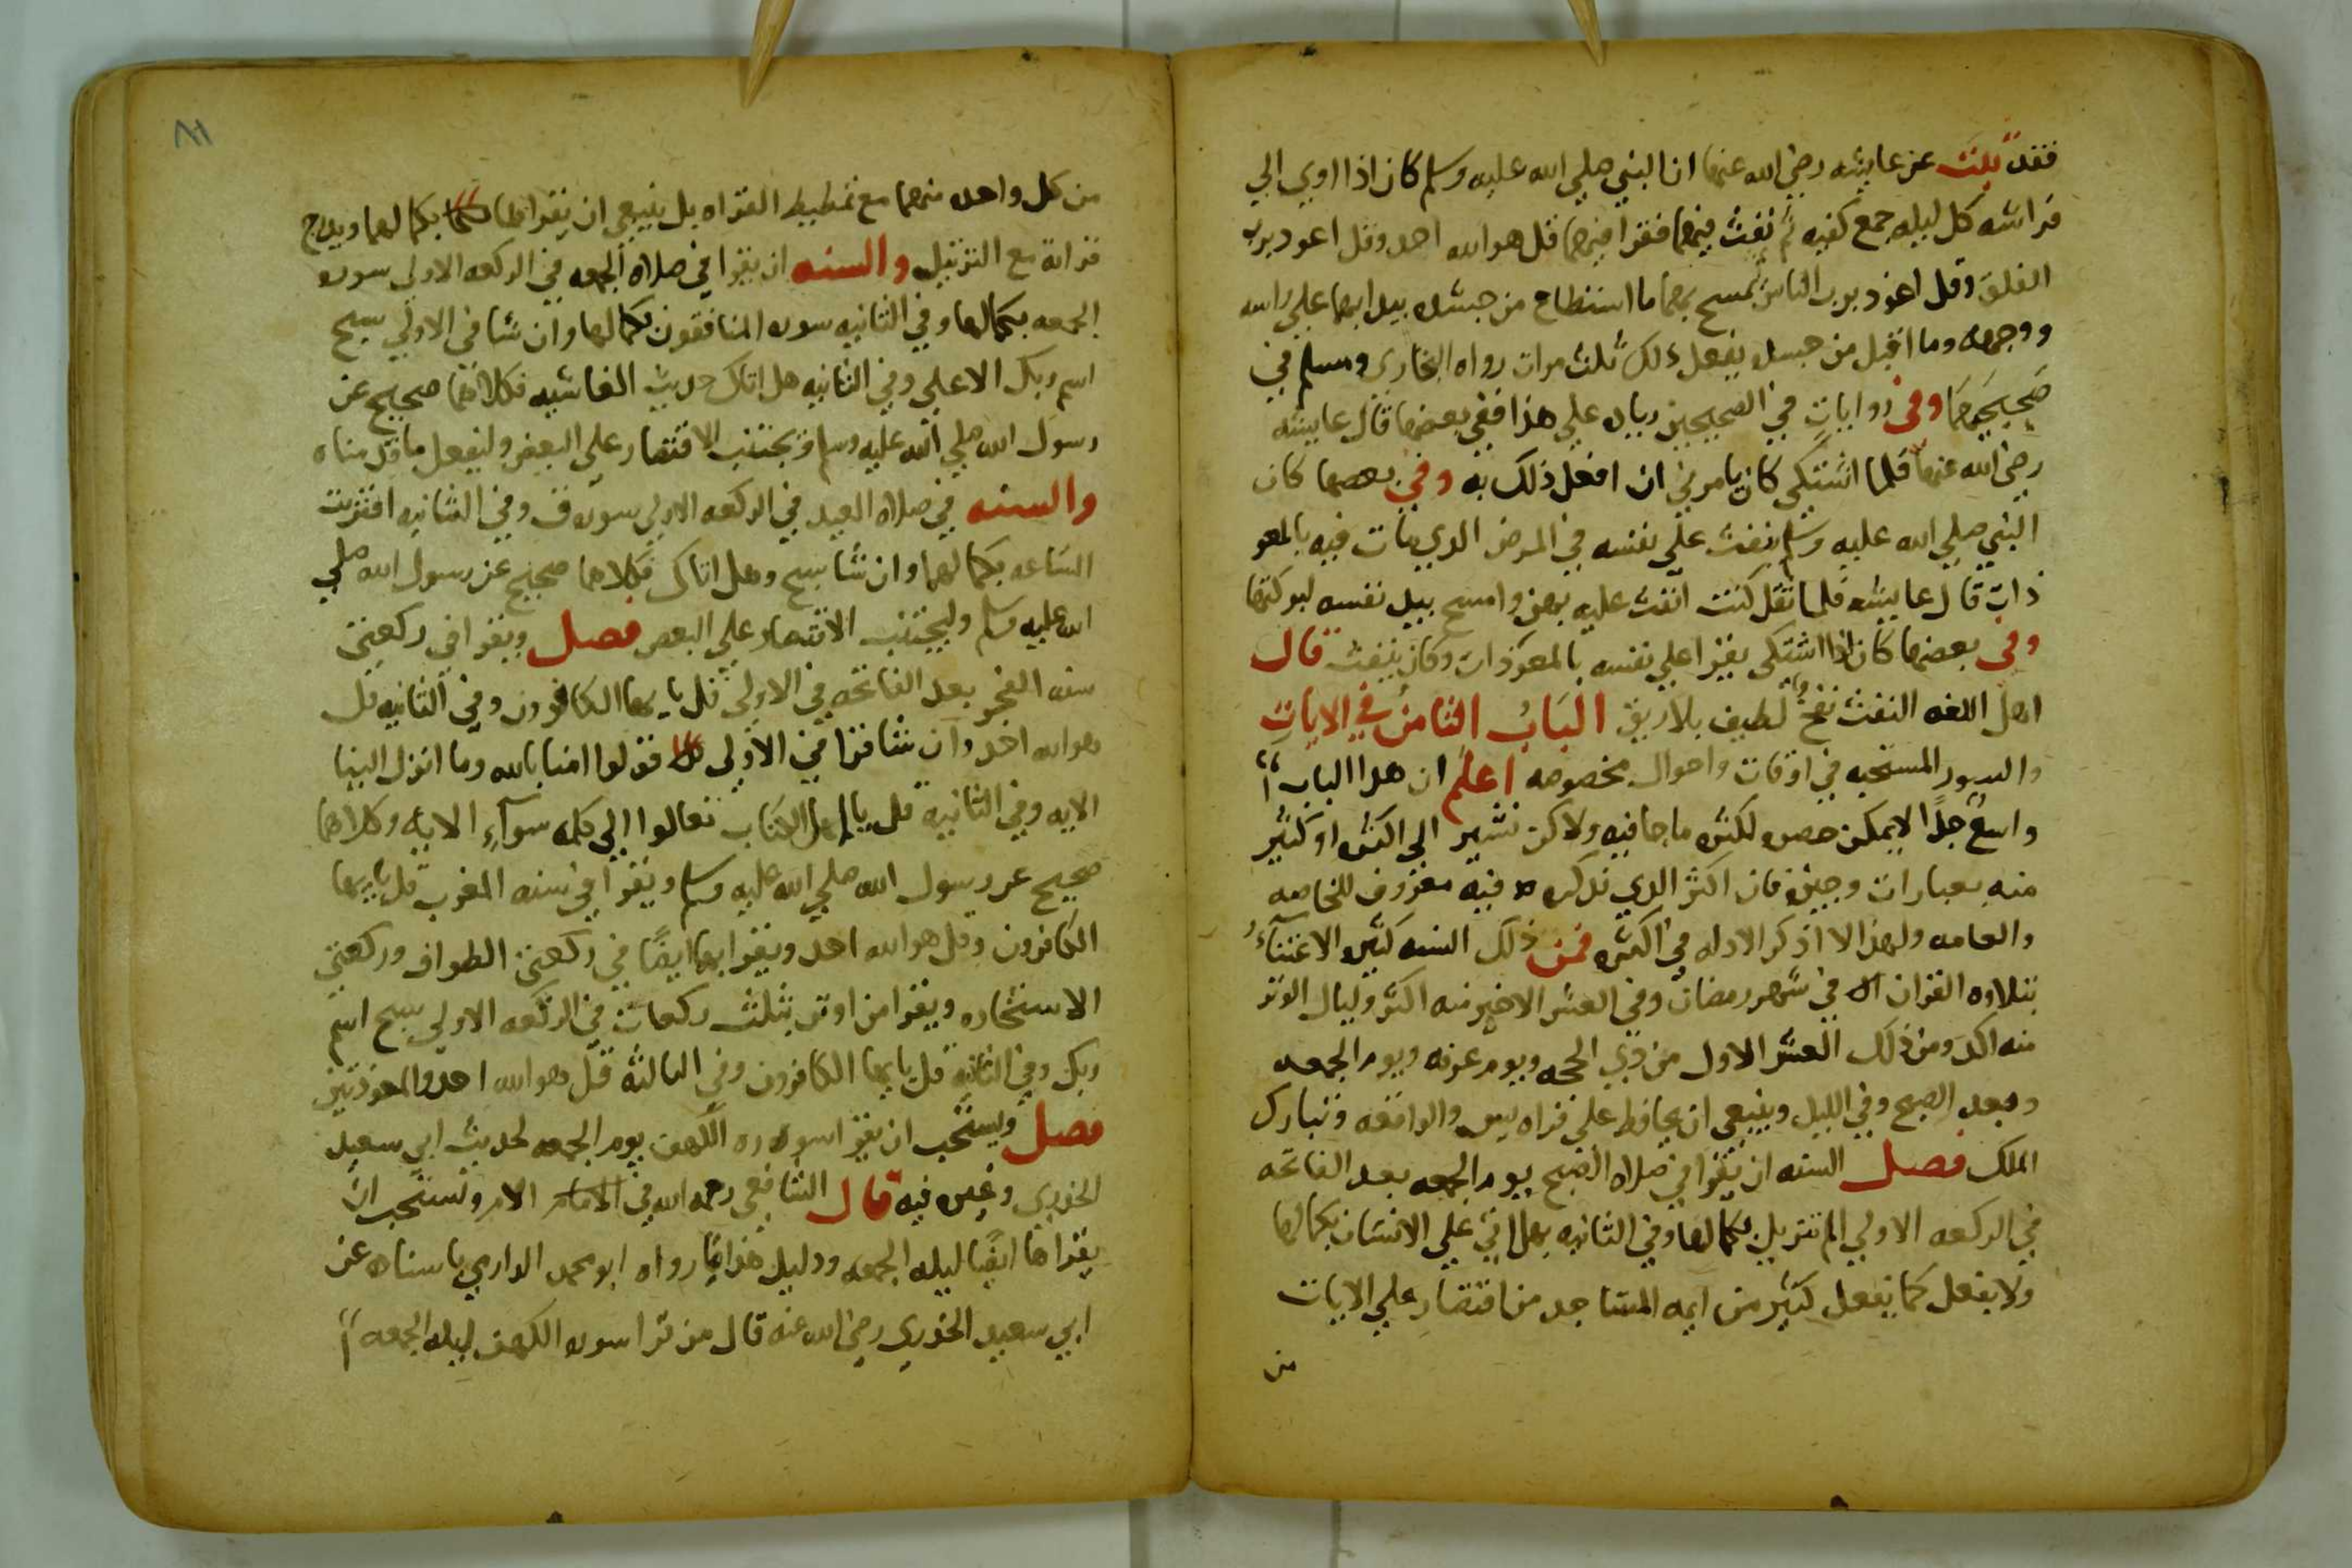 فقد ثبت عن عايشه رضي الله عنها ان النبي صلي الله عليه وسلم كان اذا اوي الي
فراشه كل ليله جمع كفيه ثم نفث فيهما فقرا فيهما قل هو الله احد وقل اعوذ برب
الفلق وقل اعوذ برب الناس ثم مسح بهما ما استطاع من جسده يبدا بهما علي راسه
ووجهه وما اقبل من جسده يفعل ذلك ثلث مرات رواه البخاري ومسلم في
صحيحيهما وفي روايات في الصحيحين زياده علي هذا ففي بعضها قال عايشه
رضي الله عنها فلما اشتكي كان يامرني ان افعل ذلك به وفي بعضها كان
النبي صلي الله عليه وسلم ينفث علي نفسه في المرض الدي مات فيه بالمعو
ذات قال عايشه فلما ثقل كنت انفث عليه بهن وامسح بيد نفسه لبركتها
وفي بعضها كان اذا اشتكي يقرا علي نفسه بالمعوذات وكان ينفث قال
اهل اللغه النفث نفخ لطيف بلا ريق الباب الثامن في الايات
والسور المستحبه في اوقات واحوال مخصوصه اعلم ان هدا الباب
واسع جدا لا يمكن حصره لكثره ما جا فيه ولاكن نشير الي اكثره او كثير
منه بعبارات وجيزه فان اكثر الدي ندكره فيه معروف للخاصه
والعامه ولهذا لا اذكر الادله في اكثره فمن ذلك السنه كثره الاعتنآء
بتلاوه القران في شهر رمضان وفي العشر الاخير منه اكثر وليال الوتر
منه اكد ومن ذلك العشر الاول من ذي الحجه ويوم عرفه ويوم الجمعه
وبعد الصبح وفي الليل وينبغي ان يحافظ علي قراه يس والواقعه وتبارك
الملك فصل السنه ان يقرا في صلاه الصبح يوم الجمعه بعد الفاتحه
في الركعه الاولي الم تنزيل بكمالها وفي الثانيه هل اتي علي الانسان بكمالها
ولا يفعل كما يفعل كثير من ايمه المساجد من اقتصار علي الايات
من
٨١
من كل واحده منهما مع تمطيط القراه بل ينبغي ان يقراهما بكمالهما ويدرج
قراته مع الترتيل والسنه ان يقرا في صلاه الجمعه في الركعه الاولي سوره
الجمعه بكمالها وفي الثانيه سوره المنافقون بكمالها وان شا في الاولي سبح
اسم ربك الاعلي وفي الثانيه هل اتاك حديث الغاشيه فكلاهما صحيح عن
رسول الله صلي الله عليه وسلم ويجتنب الاقتصار علي البعض وليفعل ما قدمناه
والسنه في صلاه العيد في الركعه الاولي سوره ق وفي الثانيه اقتربت
الساعه بكمالهما وان شا سبح وهل اتاك فكلاهما صحيح عن رسول الله صلي
الله عليه وسلم وليجتنب الاقتصار علي البعض فصل ويقرا في ركعتي
سنه الفجر بعد الفاتحه في الاولي قل يا يها الكافرون وفي الثانيه قل
هو الله احد وان شا قرا في الاولي قولوا امنا بالله وما انزل الينا
الايه وفي الثانيه قل يا اهل الكتاب تعالوا الي كلمه سوآء الايه وكلاهما
صحيح عن رسول الله صلي الله عليه وسلم ويقرا في سنه المغرب قل يا يها
الكافرون وقل هو الله احد ويقرا بهما ايضا في ركعتي الطواف وركعتي
الاستخاره ويقرا من اوتر بثلث ركعات في الركعه الاولي سبح اسم
ربك وفي الثانيه قل يا يها الكافرون وفي الثالثه قل هو الله احد والمعوذتين
فصل ويستحب ان يقرا سوره الكهف يوم الجمعه لحديث ابي سعيد
الخدري وغيره فيه قال الشافعي رحمه الله في الامام الام ويستحب ان
يقراها ايضا ليله الجمعه ودليل هذا ما رواه ابو محمد الدارمي باسناده عن
ابي سعيد الخدري رضي الله عنه قال من قرا سوره الكهف ليله الجمعه